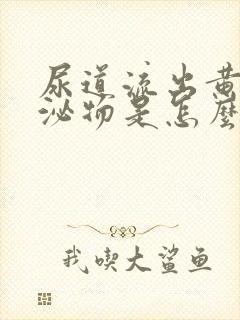 尿道流出黄
泌物是怎麽
我喫大鲨鱼